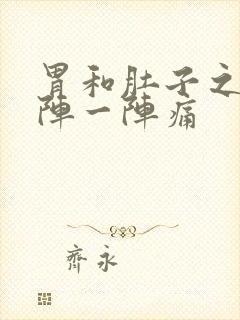 胃和肚子之
陣一陣痛
齊永